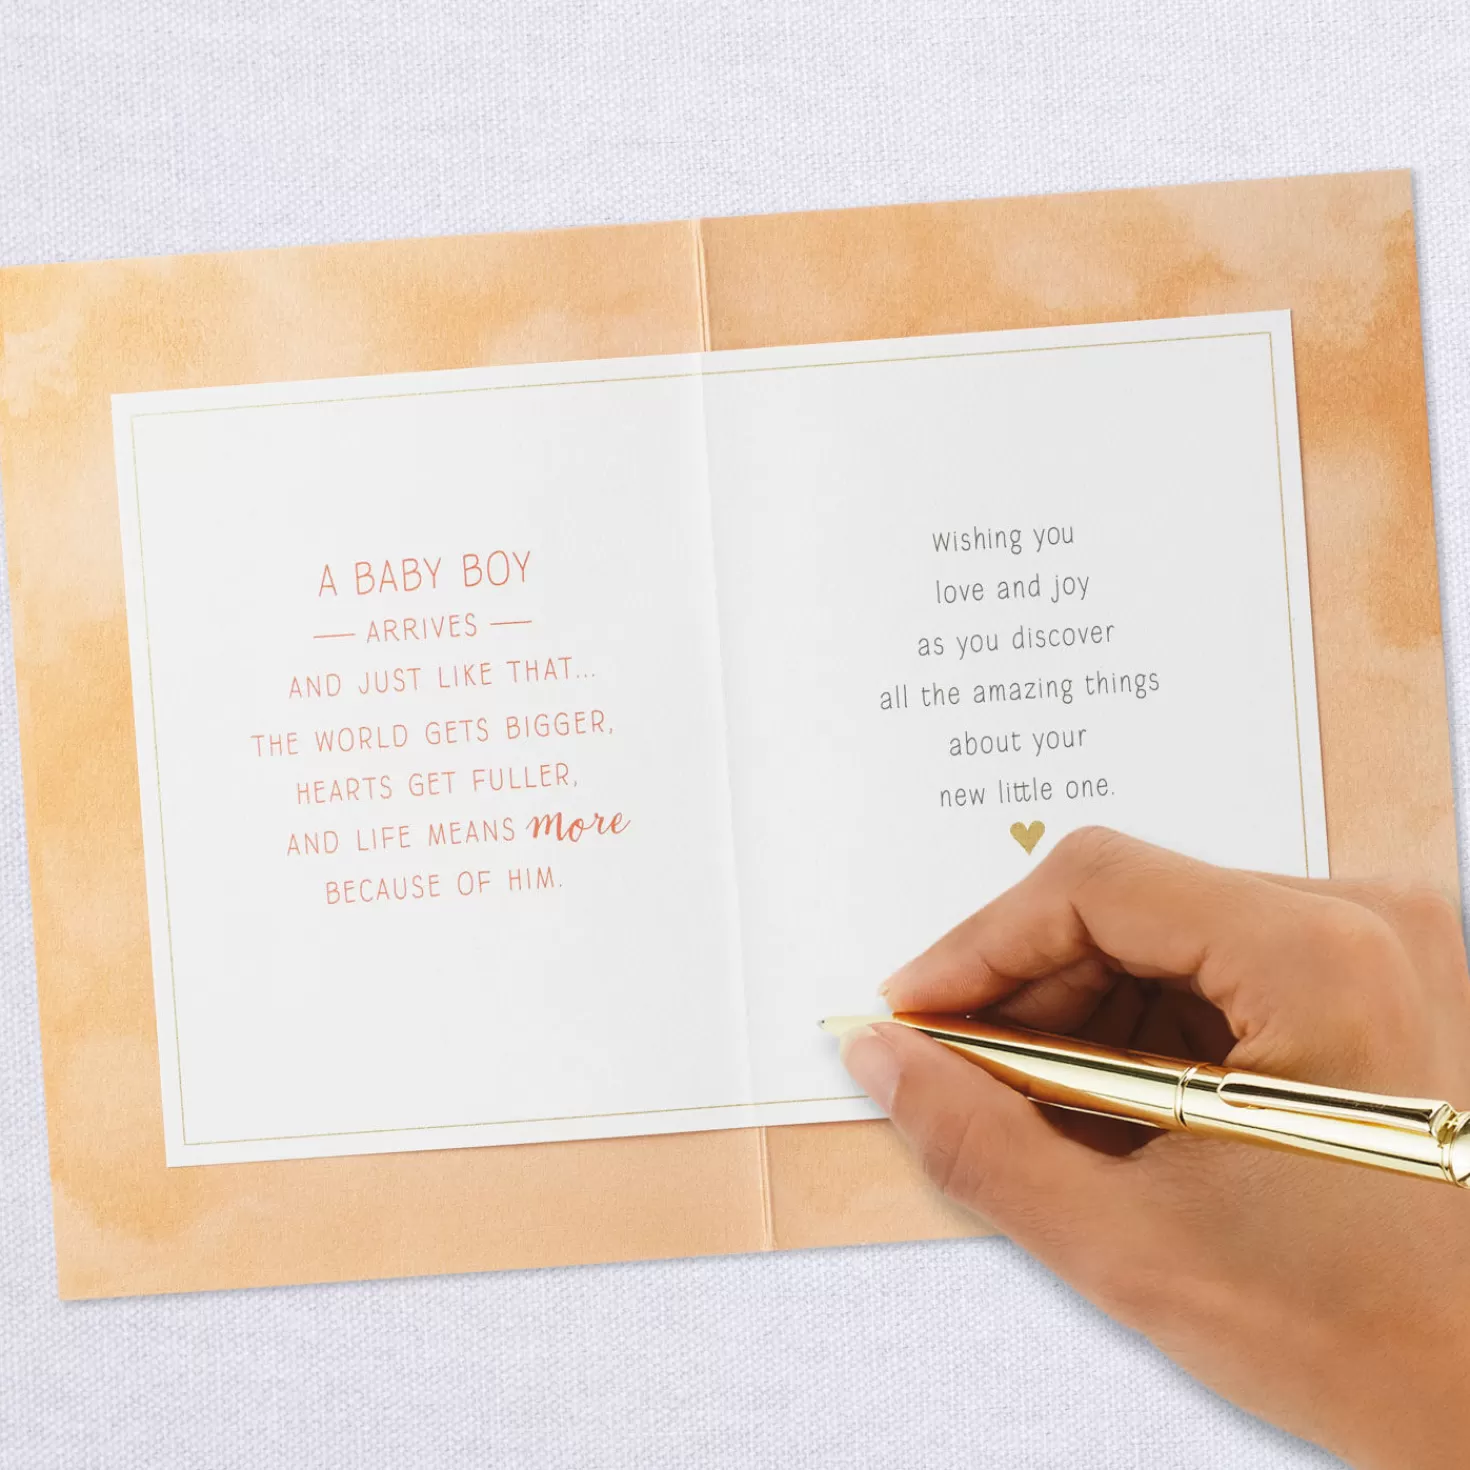 A BABY BOY
— ARRIVES —
AND JUST LIKE THAT...
THE WORLD GETS BIGGER,
HEARTS GET FULLER,
AND LIFE MEANS more
BECAUSE OF HIM.
Wishing you
love and joy
as you discover
all the amazing things
about your
new little one.